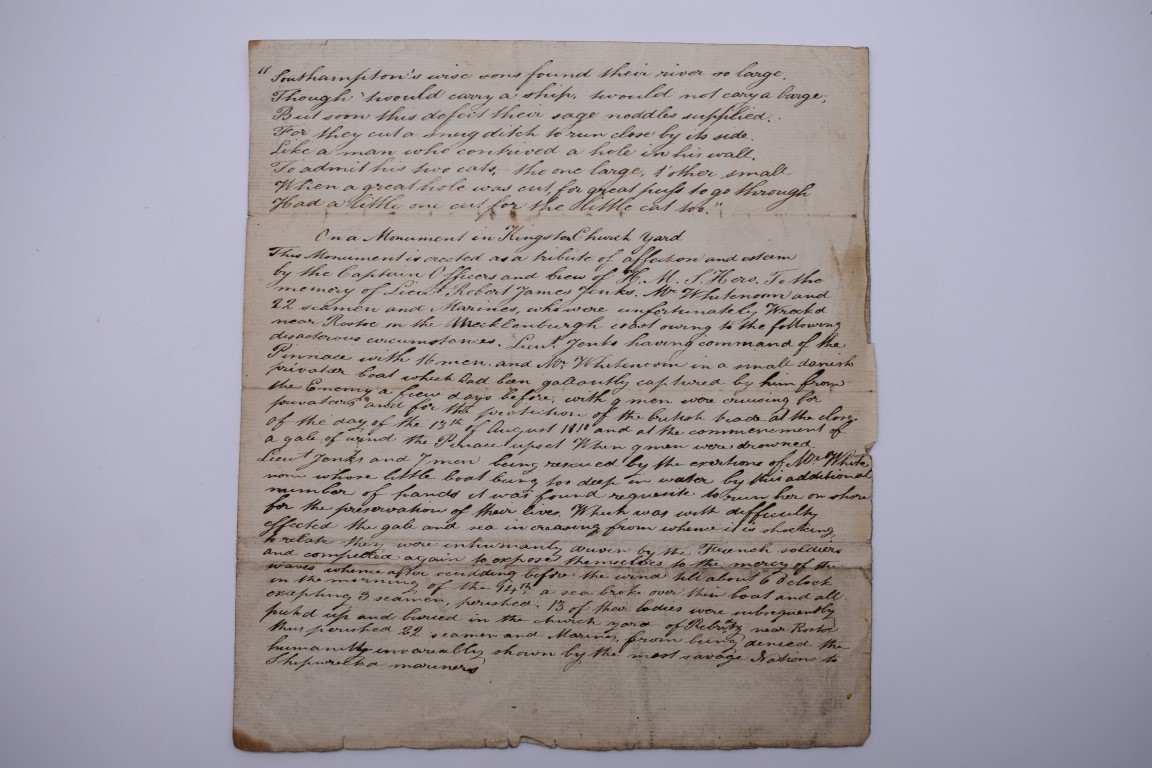 "Southampton's wise sons found their river so large.
Though 'twould carry a ship, twould not cary a barge,
But soon this defect their sage noddles supplied.
For they cut a snug ditch to run close by its side.
Like a man who contrived a hole in his wall.
To admit his two cats, the one large, t'other small
When a great hole was cut, for great puss to go through
Had a little one cut for the little cat too."
On a Monument in Kingston Church Yard
This Monument is erected as a tribute of affection and esteem
by the Captain Officers and brew of H. M. S. Hero. To the
memory of Lieut. Robert James Jinks. Mr Whitenoom and
22 seamen and Marines, who were unfortunately Wreck'd
near Rostoc on the Mecklenburgh coast owing to the following
disasterous circumstances. Lieut. Jenks having command of the
Pinnace with 16 men. and Mr Whitenoom in a small danish
privateer boat which had been gallantly captured by him from
the Enemy a few days before, with 9 men were cruising for
privateers and for the protection of the british trade at the close
of the day of the 13th of August 1810 and at the commencement of
a gale of wind the Pinace upset When 9 men were drowned
Lieut Jenks and 7 men being rescued by the exertions of Mr White
noom whose little boat being too deep in water by this additional
number of hands it was found requesite to run her on shore
for the preservation of their lives. Which was with difficulty
effected the gale and sea increasing from whence it is shocking
to relate they were inhumanly driven by the French soldiers
and compelled again to expose themselves to the mercy of the
waves whence after scudding before the wind till about 6 o'clock
in the morning of the 14th a sea broke over their boat and all
excepting 3 seamen, perished. 13 of their bodies were subsequently
pick'd up and buried in the church yard of near Rostoc
thus perished 22 seamen and Marines, from being denied the
humanity invariably shown by the most savage Nations to
Shipwreck'd mariners